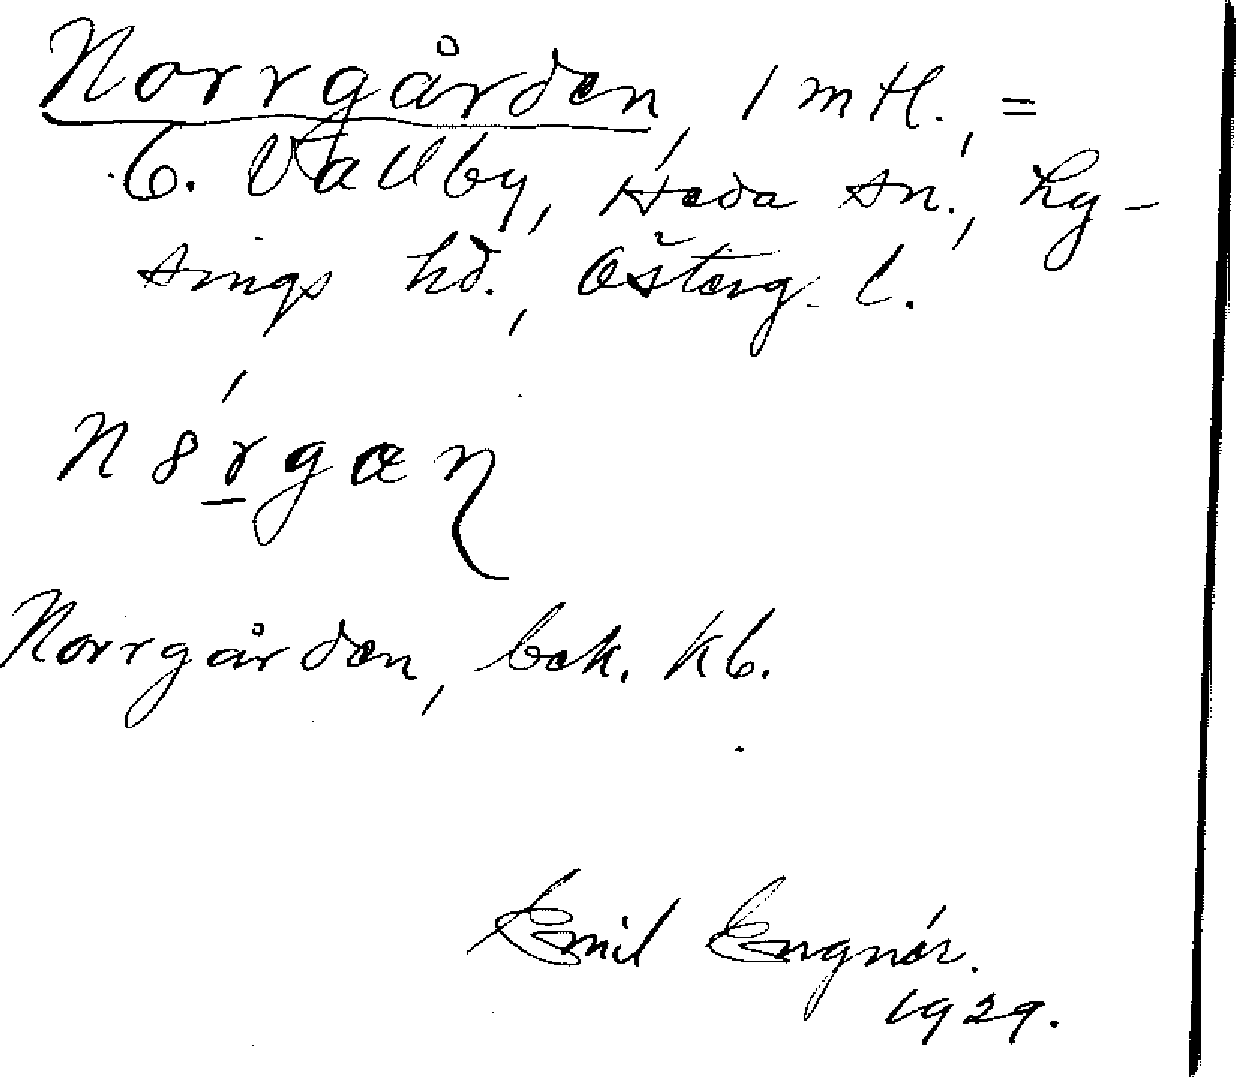 Norrgården, 1 mtl., =
6. Vallby, Heda sn., Ly-
sings hd., Österg. l.
Norrgården, bek. kb.
Emil Engnér.
1929.